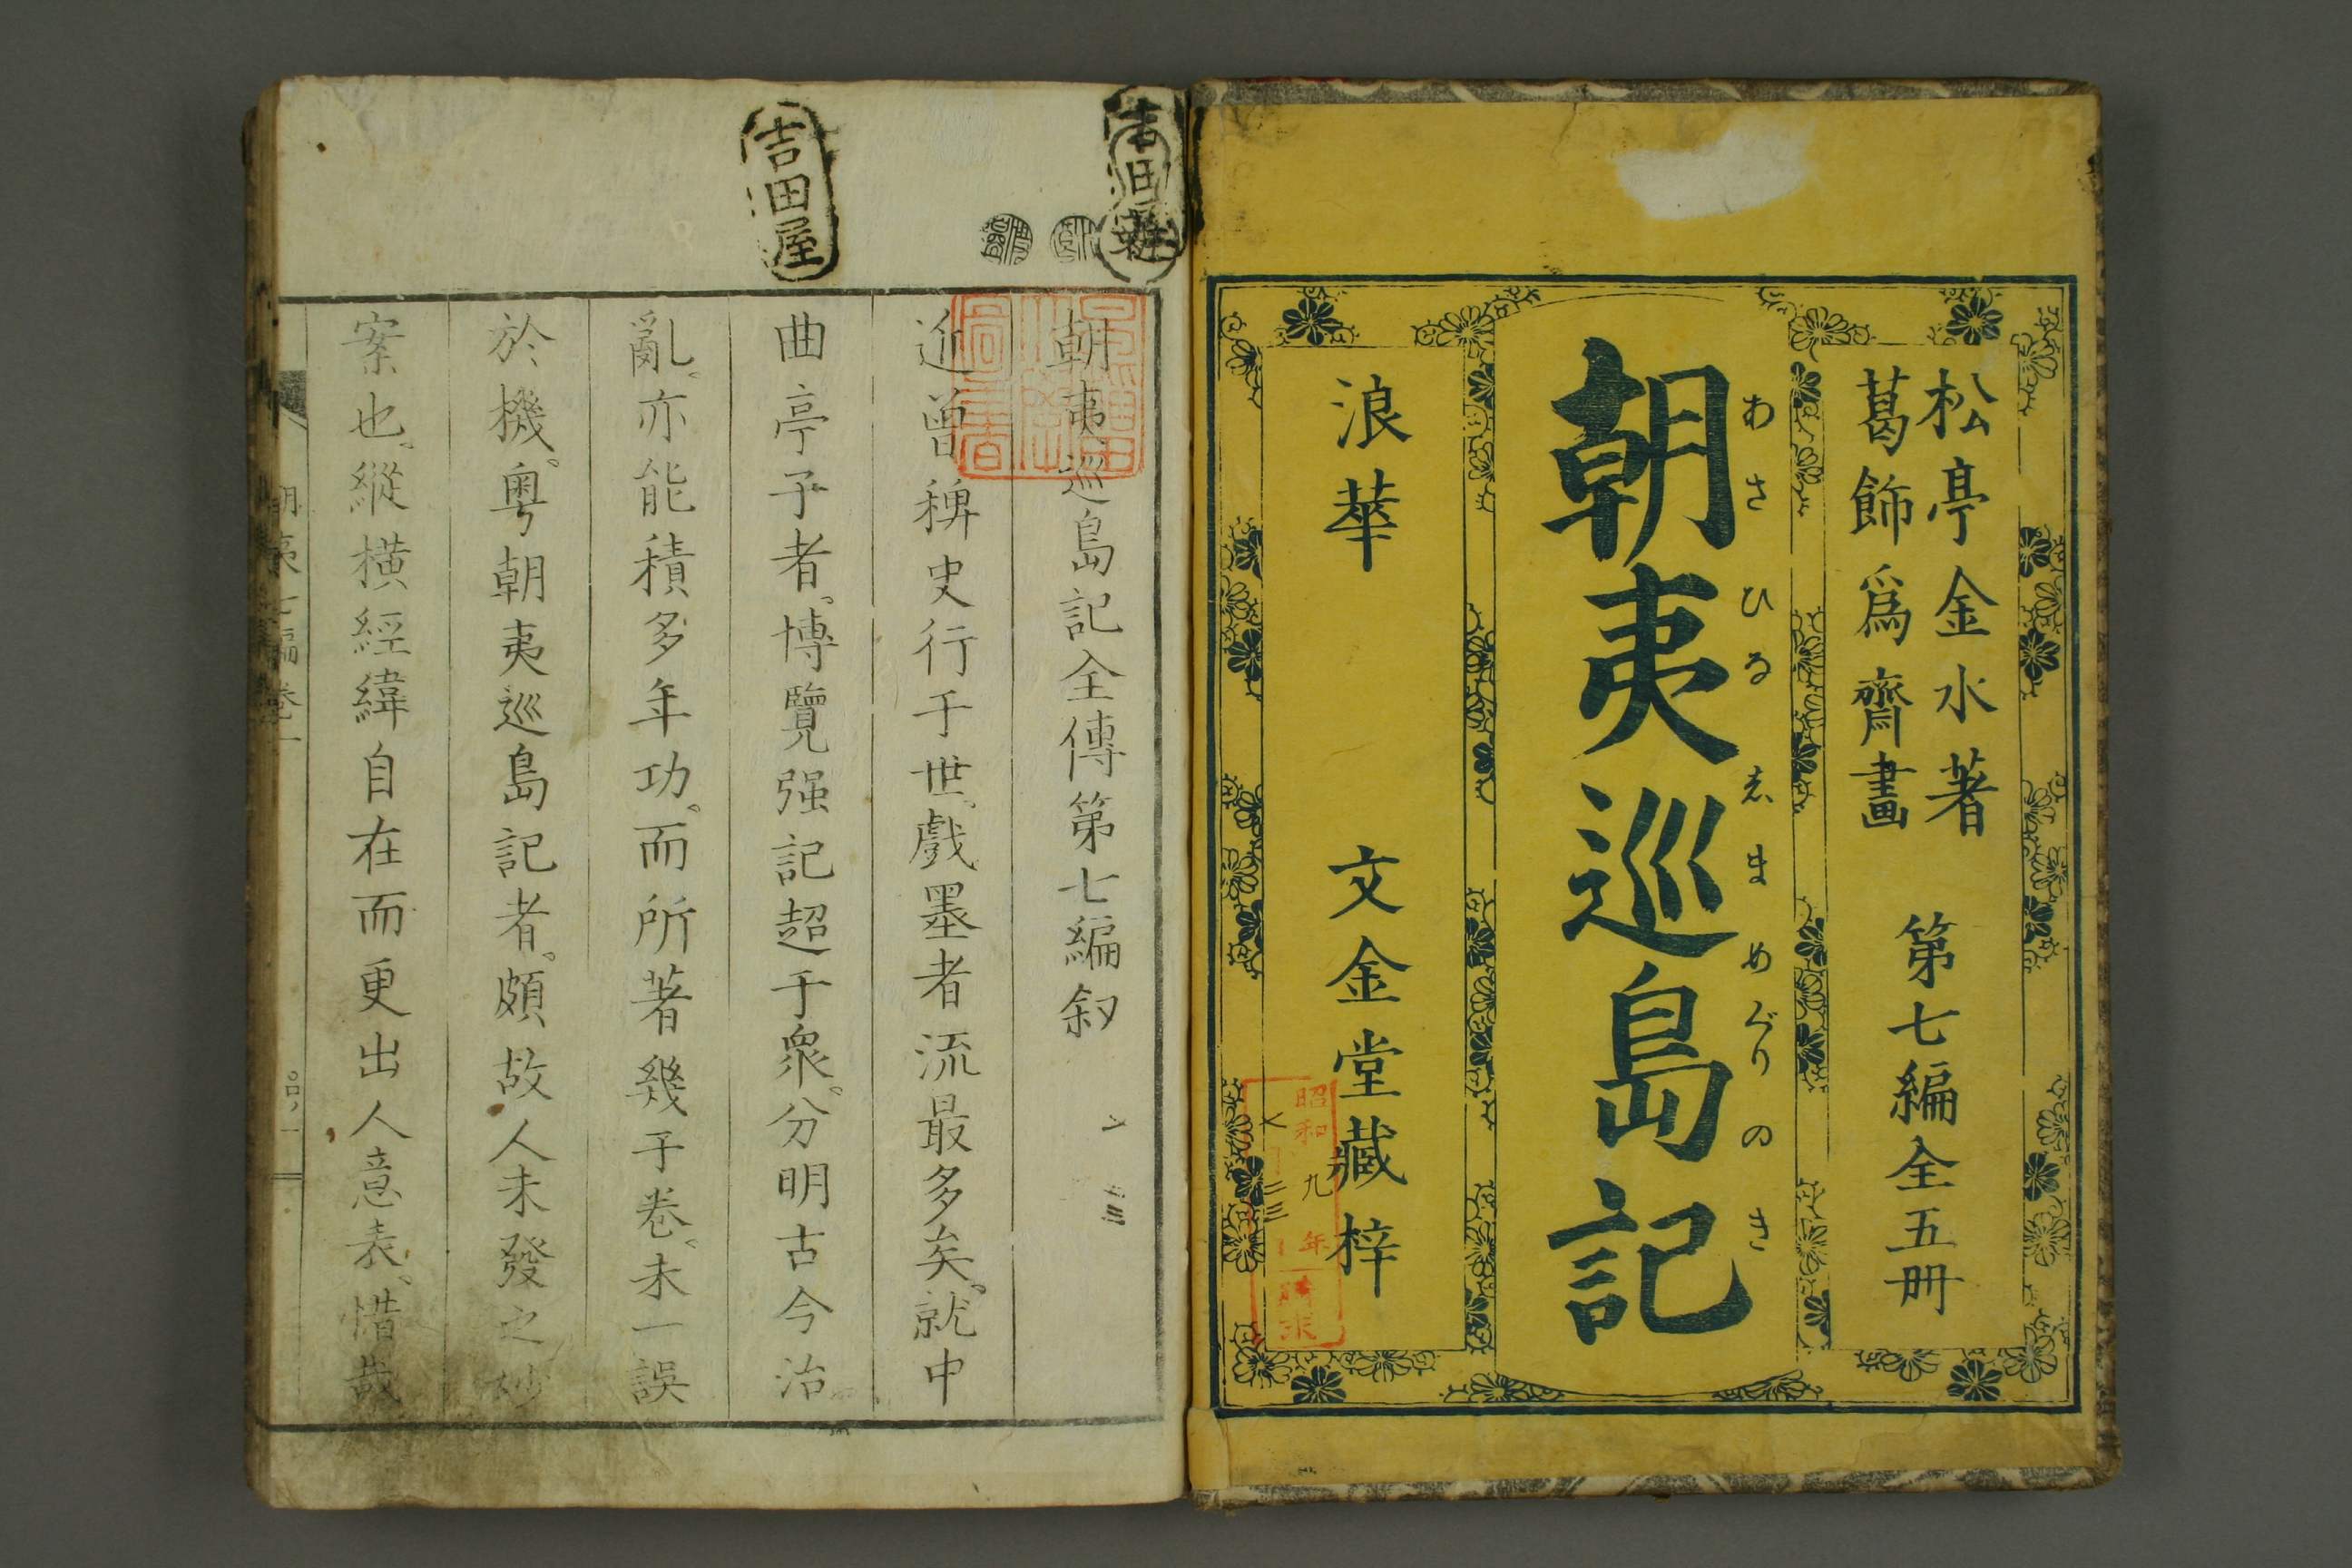 松亭金水著
葛飾爲齋畫
第七編全五冊
朝夷巡島記
あさひるしまめぐりのき
浪華 文金堂藏梓
昭和九年
吉田屋
吉田屋
朝夷巡島記全傳第七編叙
近曽稗史行于世、戲墨者流最多矣。就中
曲亭子者。博覽强記超于衆。分明古今治
亂。亦能積多年功。而所著幾千卷、未一誤
於機。粤朝夷巡島記者。頗故人未發之妙
案也。縱横經緯自在而更出人意表。惜哉
朝夷七編卷一